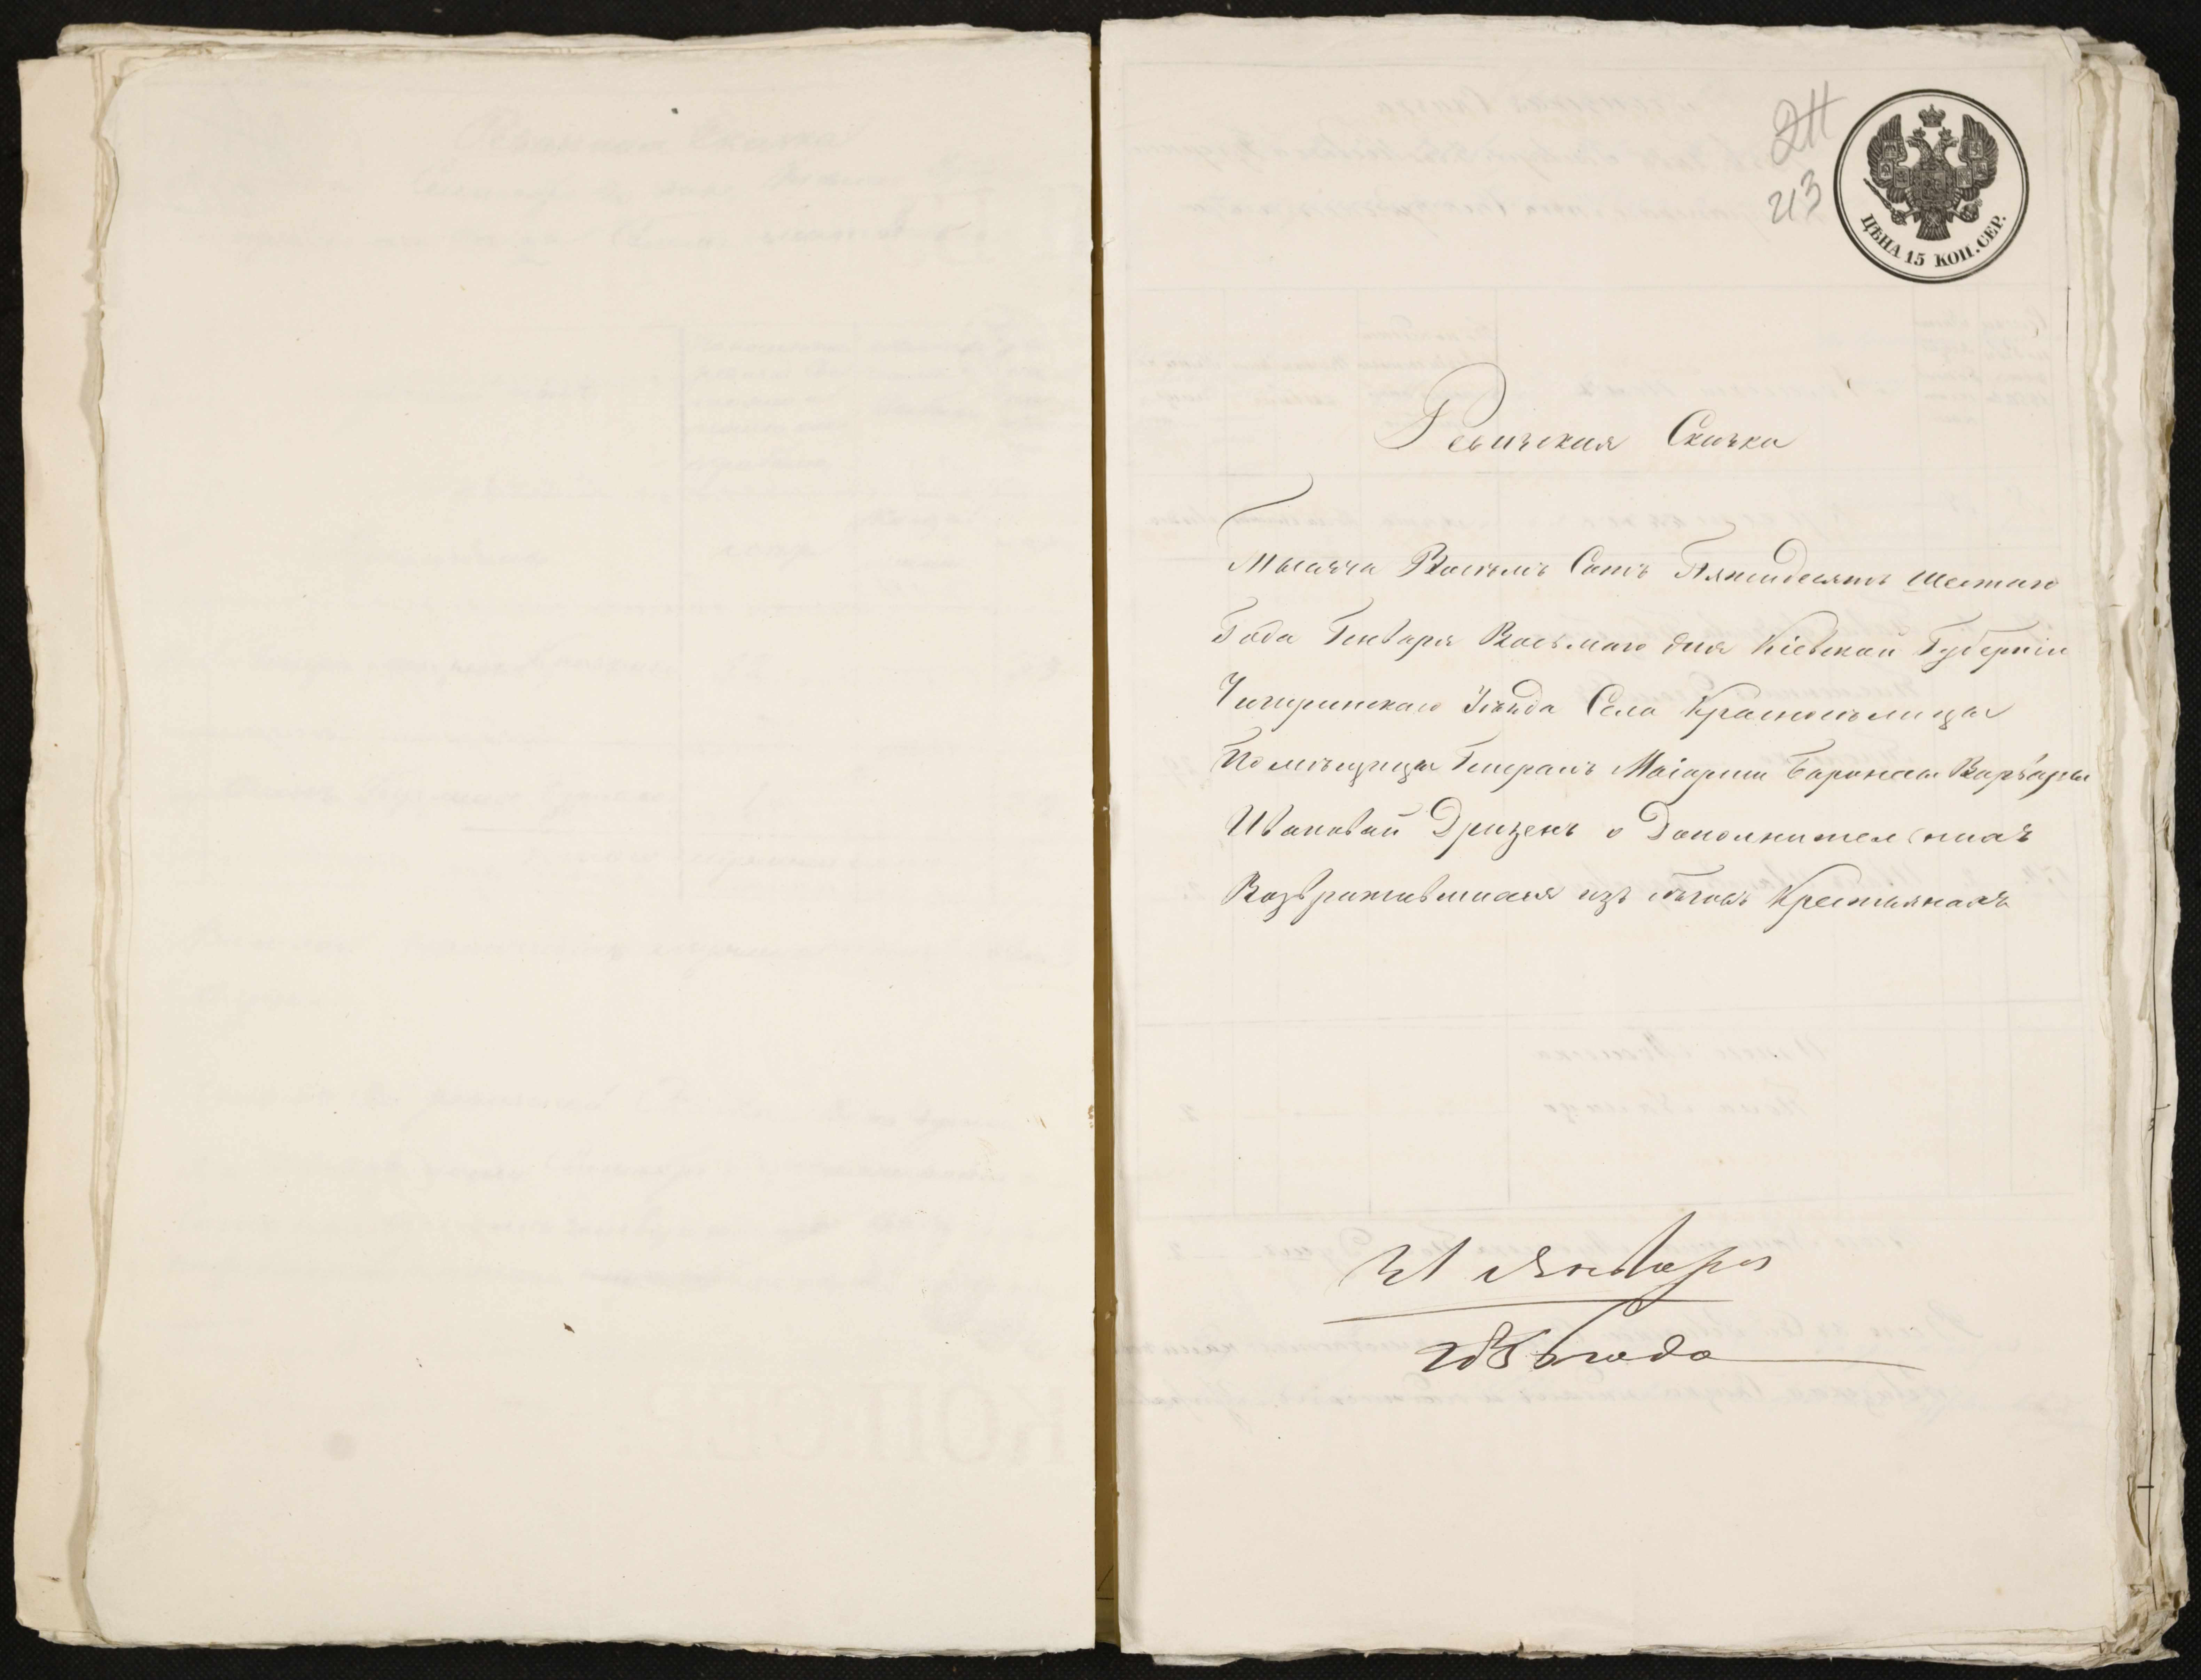 211
213
ЦѢНА 15 КОП. СЕР.
Ревизская Сказка
Тысяча Восемъ Сотъ Пятидесятъ шестаго
Года Генваря Восьмаго дня Кіевской Губерніи
Чигиринскаго Уѣзда Села Красносѣлицы
Помѣщицы Генералъ Маіорши Баронесы Варвары
Ивановой Дризенъ о Дополнительныхъ
Возвратившихся изъ бѣговъ Крестьянахъ
Января
1856 года